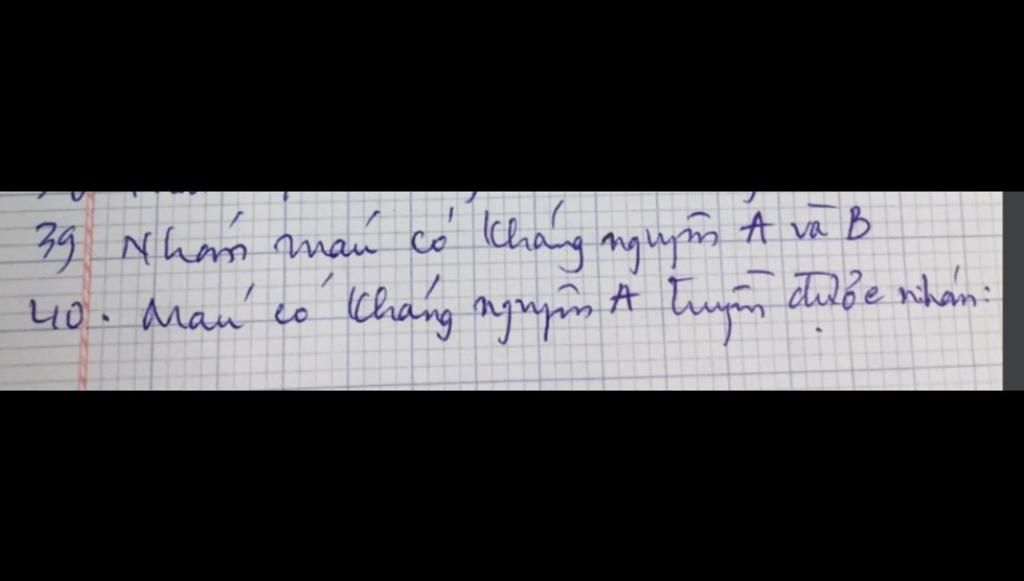 39 Nhóm máu có kháng nguyên A và B
40. Máu có kháng nguyên A truyền được nhóm: